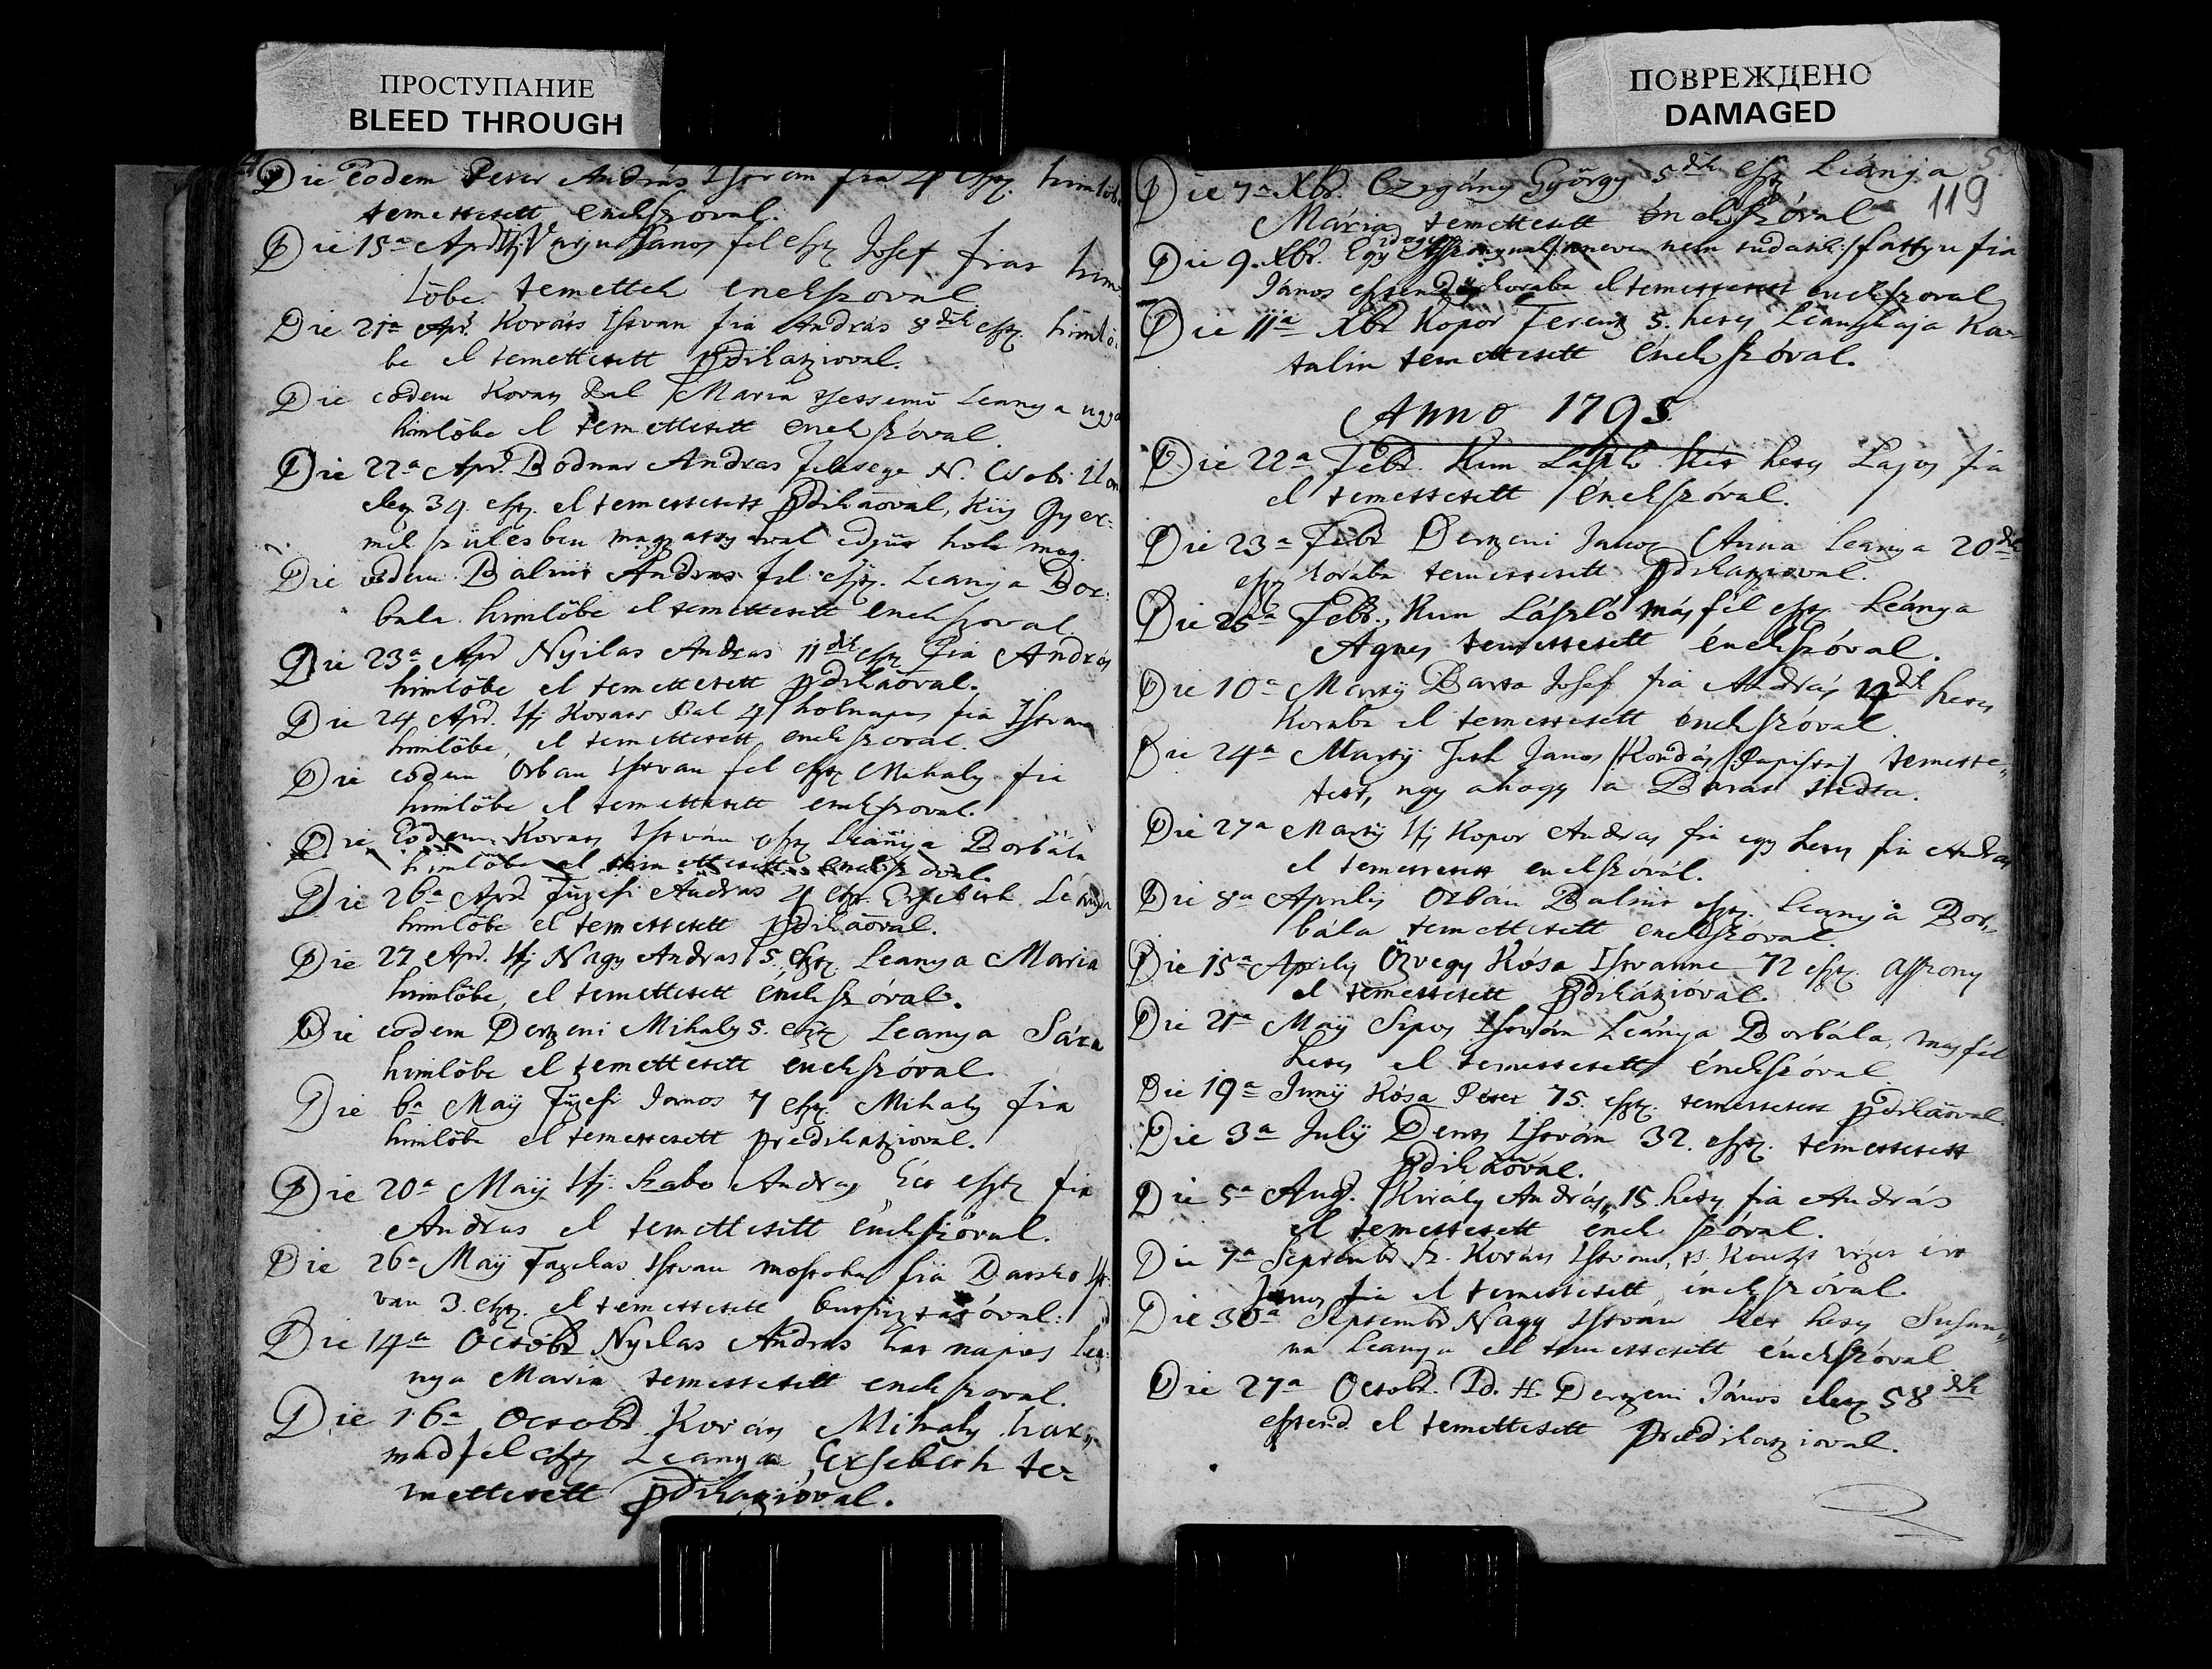 ПРОСТУПАНИЕ
BLEED THROUGH
ПОВРЕЖДЕНО
DAMAGED
Die Eodem Peter András Istvan fia 4 esz. himlöbe
temettetett enekszoval.
Die 15a Apr. Ifj. Varju Janos fel esz Josef fiat him
löbe temettek enekszoval
Die 21a Apr. Kováts Istvan fia András 8dik esz. himlö-
be el temettetett pdikazioval.
Die eodem Kovats Pal Maria Leanya ugya
himlöbe el temettetett enekszóval.
Die 22a Apr. Bodnar Andras felesege N. Csobi Ilon
elez 39. esz. el temettetett pdikaoval, Kis Gyer-
mek szülesben magzattyaval edjüt holt meg.
Die eodem Balint Andras fel esz. Leanya Bor-
bala himlöbe el temettetett enekszoval
Die 23a Apr Nyilas Andras 11dik esz fia András
himlöbe el temettetett pdikaoval.
Die 24 Apr. Ifj Kovats Pal 4 holnapos fia Istvan
himlöbe, el temettetett enekszoval.
Die eodem Orban Istvan fel esz Mihaly fia
himlöbe el temettetett enekszoval.
Die Eodem Kovats István esz Leánya Borbála
himlöbe el temettetett enekszoval.
Die 26a Apr. Füzesi Andras 4 esz. Ersebeth Leanya
himlöbe el temettetett pdikaoval.
Die 27 Apr. Ifj Nagy Andras 5. esz. Leanya Maria
himlöbe, el temettetett enekszóval.
Die eodem Derzeni Mihaly 5. esz Leanya Sára
himlöbe el temettetett enekszóval.
Die 6a Maÿ Füzesi Janos 7 esz. Mihaly fia
himlöbe el temettetett predikatzioval.
Die 20a Maÿ Ifj. Szabo Andras esz fia
Andras el temettetett énekszóval.
Die 26a Maÿ Fazekas Istvan mostoha fia Darko Ist-
van 3. esz. el temettetett butsuztatóval.
Die 14a Octobr Nyilas András hat napos Lea-
nya Maria temettetett enekszoval.
Die 16a Octobr Kováts Mihaly har-
madfel esz Leanya Ersebeth te-
mettetett pdikazióval.
119
Die 7a Xbr. Czigány György 5dik esz Leánya
Mária temettetett énekszóval
Die 9. Xbr. Egy idegen neve nem tudatik fattyu fia
János koraba el temettetett enekszoval
Die 11a Xbr Kopor Ferentz 5. hetes Leánykaja Ka-
talin temettetett énekszóval.
Anno 1795
Die 22a Febr. Kun László Két hetes Lajos fia
el temettetett énekszóval.
Die 23a Febr Derzeni Janos Anna Leanya 20dik
esz koraba temettetett pdikazioval.
Die 25a Febr. Kun László másfél esz. Leánya
Agnes temettetett énekszóval.
Die 10a Martÿ Barta Josef fia András 14dik hetes
Koraba el temettetett énekszóval.
Die 24a Martÿ Toth Janos Kondás Papista temette-
tett, ugy ahogy a
Die 27a Martÿ Ifj Kopor Andras fia egy hetes fia Andras
el temettetett enekszóval.
Die 8a Aprilis Orbán Balint esz. Leanya Bor-
bála temettetett enekszóval.
Die 15a Aprilis Özvegy Kósa Istvanne 72 esz. Asszony
el temettetett pdikázióval.
Die 21a Maÿ Sipos István Leánya Borbála, más fél
hetes el temettetett énekszóval
Die 19a Junÿ Kósa Péter 75. esz. temettetett pdikaoval
Die 3a Julÿ István 32. esz. temettetett
pdikaoval.
Die 5a Aug. Király András 15 hetes fia András
el temettetett énekszóval.
Die 7a Septembr Kováts Istvan,
Janos fia el temettetett énekszóval.
Die 30a Septembr Nagy István Két hetes Susan-
na Leanya el temettetett énekszóval
Die 27a Octobr. Derzeni János elez 58dik
esztend el temettetett Prédikazioval.